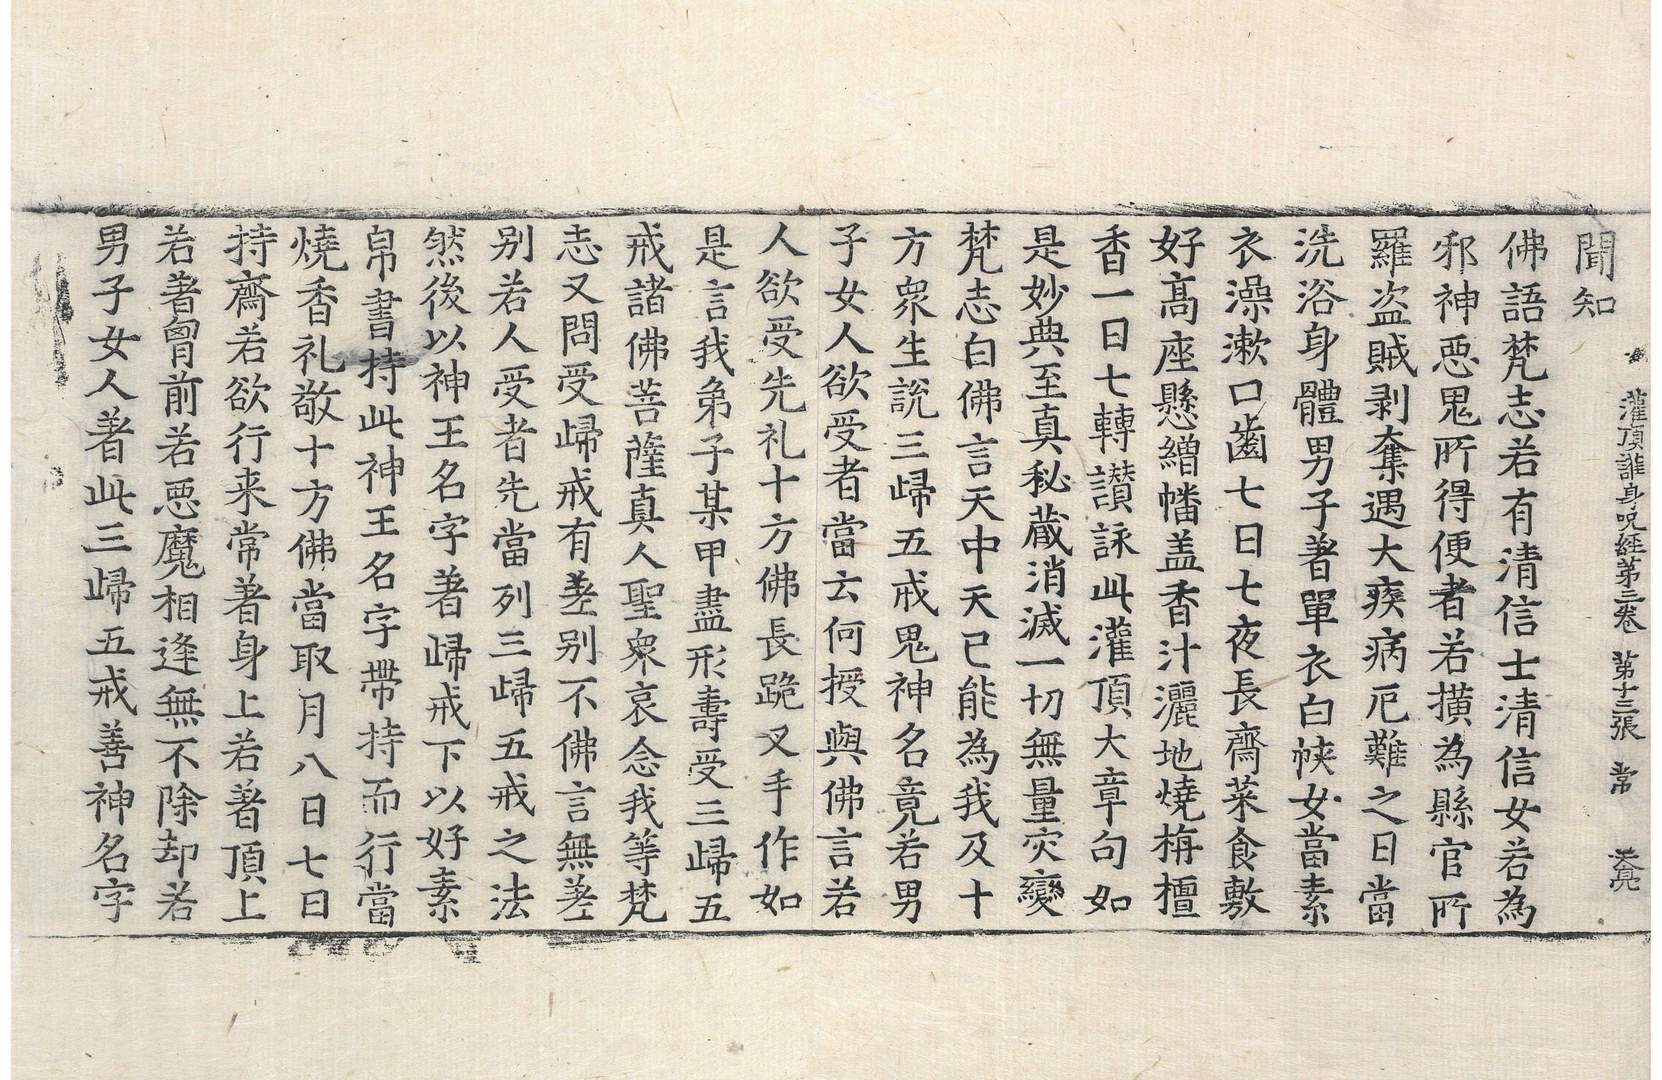 聞知
灌頂護身呪經第三卷 第十三張 常 孟亮
佛語梵志若有清信士清信女若為
邪神惡鬼所得便者若撗為縣官所
羅盗賊剥奪遇大疾病厄難之日當
洗浴身體男子著單衣白帙女當素
衣澡漱口齒七日七夜長齋菜食敷
好高座懸繒幡盖香汁灑地燒栴檀
香一日七轉讃詠此灌頂大章句如
是妙典至真秘蔵消滅一切無量灾變
梵志白佛言天中天已能為我及十
方衆生說三歸五戒鬼神名竟若男
子女人欲受者當云何授與佛言若
人欲受先礼十方佛長跪叉手作如
是言我弟子某甲盡形壽受三歸五
戒諸佛菩薩真人聖衆哀念我等梵
志又問受歸戒有差别不佛言無差
别若人受者先當列三歸五戒之法
然後以神王名字著歸戒下以好素
帛書持此神王名字帶持而行當
燒香礼敬十方佛當取月八日七日
持齋若欲行来常著身上若著頂上
若著胷前若惡魔相逢無不除却若
男子女人著此三歸五戒善神名字